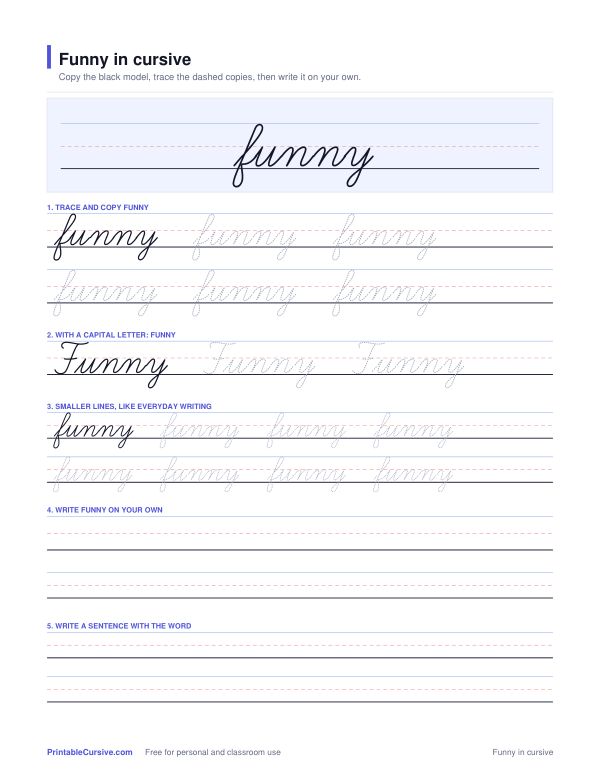 Funny in cursive
Copy the black model, trace the dashed copies, then write it on your own.
funny
1. TRACE AND COPY FUNNY
funny funny funny
funny funny funny
2. WITH A CAPITAL LETTER: FUNNY
Funny Funny Funny
3. SMALLER LINES, LIKE EVERYDAY WRITING
funny funny funny funny
funny funny funny funny
4. WRITE FUNNY ON YOUR OWN
5. WRITE A SENTENCE WITH THE WORD
PrintableCursive.com Free for personal and classroom use Funny in cursive